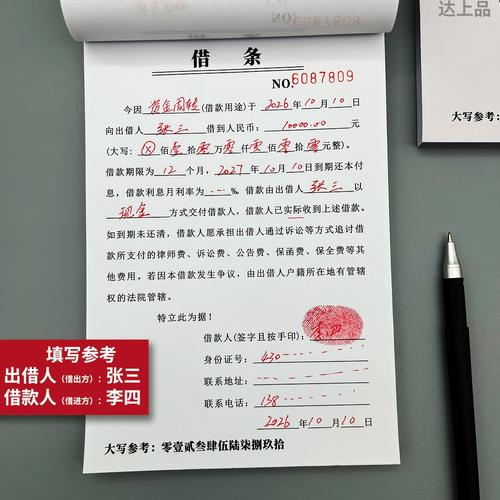 达上品
6087808
借条
NO.6087809
今因 资金周转 (借款用途)于 2026 年 10 月 10 日
向出借人 张三 借到人民币: 10000.00 元
(大写: ⊗ 佰 壹 拾 零 万 零 仟 零 佰 零 拾 零 元整).
借款期限为 12 个月, 2027 年 10 月 10 日到期还本付
息, 借款利息月利率为 -.- ‰. 借款由出借人 张三 以
现金 方式交付借款人, 借款人已实际收到上述借款.
如到期未还清, 借款人愿承担出借人通过诉讼等方式追讨借
款所支付的律师费、诉讼费、公告费、保函费、保全费等其
他费用. 若因本借款发生争议, 由出借人户籍所在地有管辖
权的法院管辖.
特立此为据!
借款人(签字且按手印): 李四
身份证号: 430
联系地址:
联系电话: 138
2026 年 10 月 10 日
大写参考: 零壹贰叁肆伍陆柒捌玖拾
填写参考
出借人(借出方): 张三
借款人(借进方): 李四
大写参考: